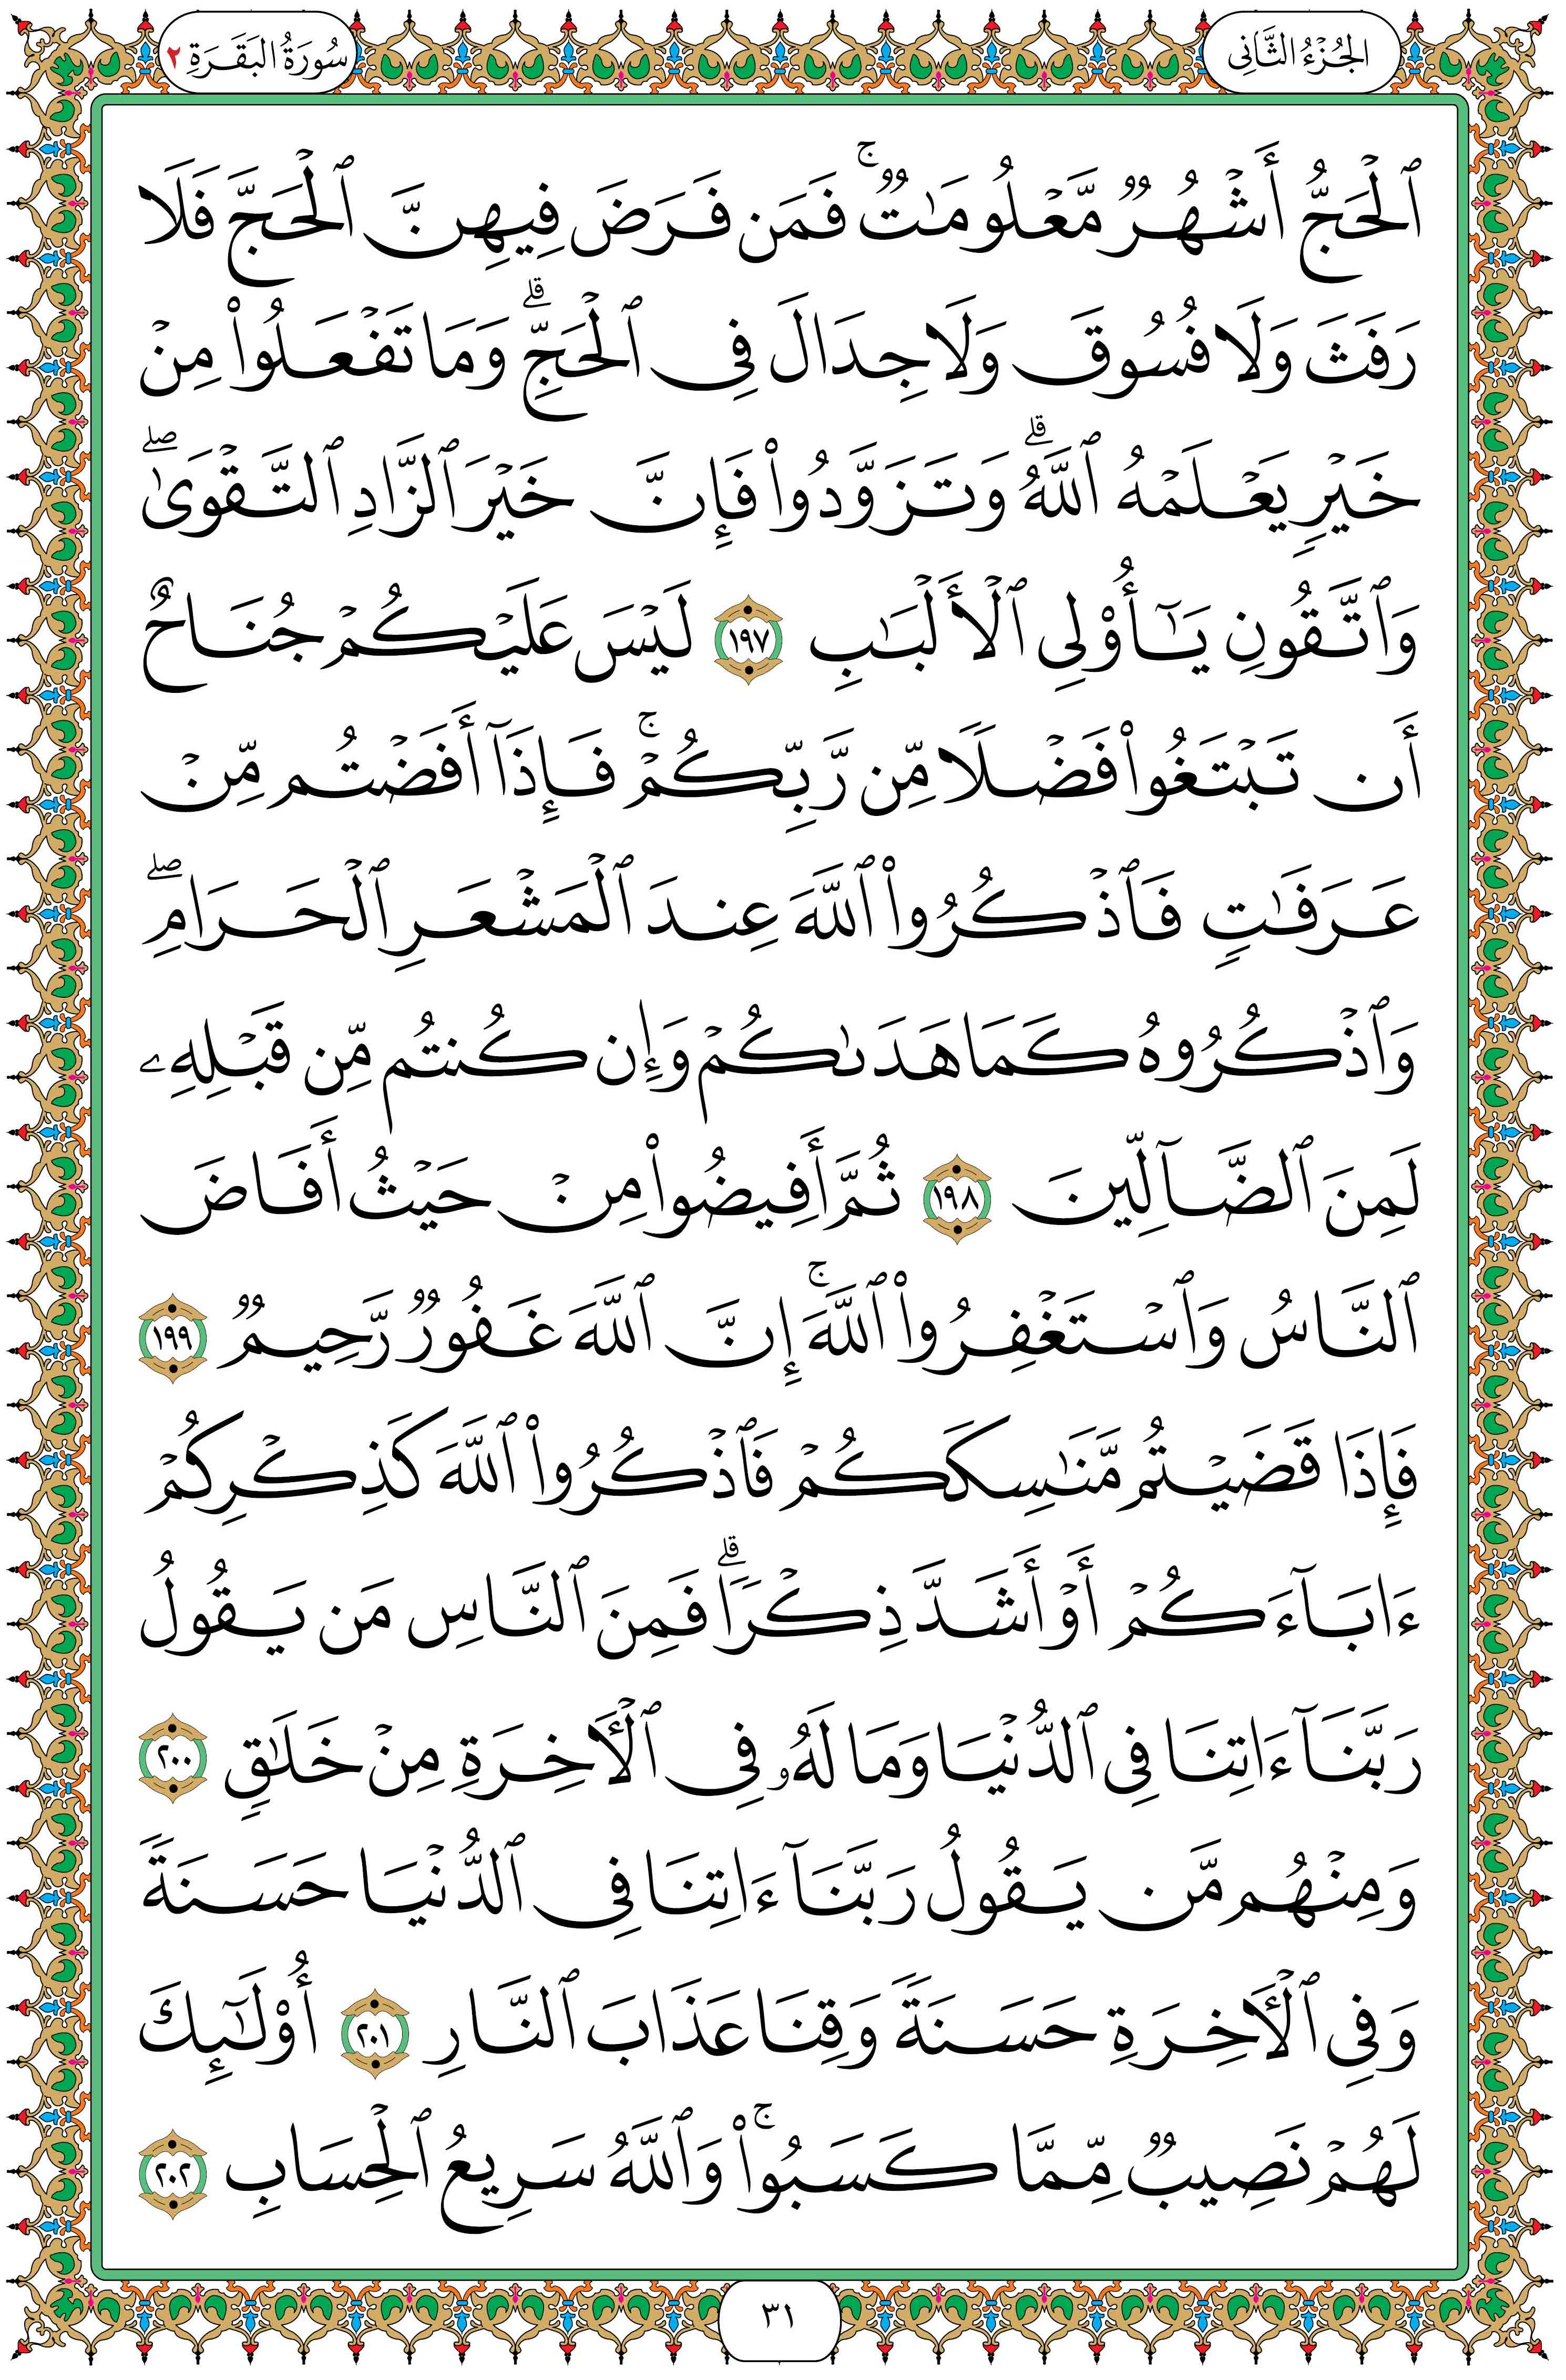 الجُزْءُ الثَّانِى
سُورَةُ البَقَرَةِ ٢
ٱلْحَجُّ أَشْهُرٌ مَّعْلُومَٰتٌ ۚ فَمَن فَرَضَ فِيهِنَّ ٱلْحَجَّ فَلَا
رَفَثَ وَلَا فُسُوقَ وَلَا جِدَالَ فِى ٱلْحَجِّ ۗ وَمَا تَفْعَلُوا۟ مِنْ
خَيْرٍ يَعْلَمْهُ ٱللَّهُ ۗ وَتَزَوَّدُوا۟ فَإِنَّ خَيْرَ ٱلزَّادِ ٱلتَّقْوَىٰ ۖ
وَٱتَّقُونِ يَٰٓأُو۟لِى ٱلْأَلْبَٰبِ ١٩٧ لَيْسَ عَلَيْكُمْ جُنَاحٌ
أَن تَبْتَغُوا۟ فَضْلًا مِّن رَّبِّكُمْ ۚ فَإِذَآ أَفَضْتُم مِّنْ
عَرَفَٰتٍ فَٱذْكُرُوا۟ ٱللَّهَ عِندَ ٱلْمَشْعَرِ ٱلْحَرَامِ ۖ
وَٱذْكُرُوهُ كَمَا هَدَىٰكُمْ وَإِن كُنتُم مِّن قَبْلِهِۦ
لَمِنَ ٱلضَّآلِّينَ ١٩٨ ثُمَّ أَفِيضُوا۟ مِنْ حَيْثُ أَفَاضَ
ٱلنَّاسُ وَٱسْتَغْفِرُوا۟ ٱللَّهَ ۚ إِنَّ ٱللَّهَ غَفُورٌ رَّحِيمٌ ١٩٩
فَإِذَا قَضَيْتُم مَّنَٰسِكَكُمْ فَٱذْكُرُوا۟ ٱللَّهَ كَذِكْرِكُمْ
ءَابَآءَكُمْ أَوْ أَشَدَّ ذِكْرًا ۗ فَمِنَ ٱلنَّاسِ مَن يَقُولُ
رَبَّنَآ ءَاتِنَا فِى ٱلدُّنْيَا وَمَا لَهُۥ فِى ٱلْـَٔاخِرَةِ مِنْ خَلَٰقٍ ٢٠٠
وَمِنْهُم مَّن يَقُولُ رَبَّنَآ ءَاتِنَا فِى ٱلدُّنْيَا حَسَنَةً
وَفِى ٱلْـَٔاخِرَةِ حَسَنَةً وَقِنَا عَذَابَ ٱلنَّارِ ٢٠١ أُو۟لَٰٓئِكَ
لَهُمْ نَصِيبٌ مِّمَّا كَسَبُوا۟ ۚ وَٱللَّهُ سَرِيعُ ٱلْحِسَابِ ٢٠٢
٣١